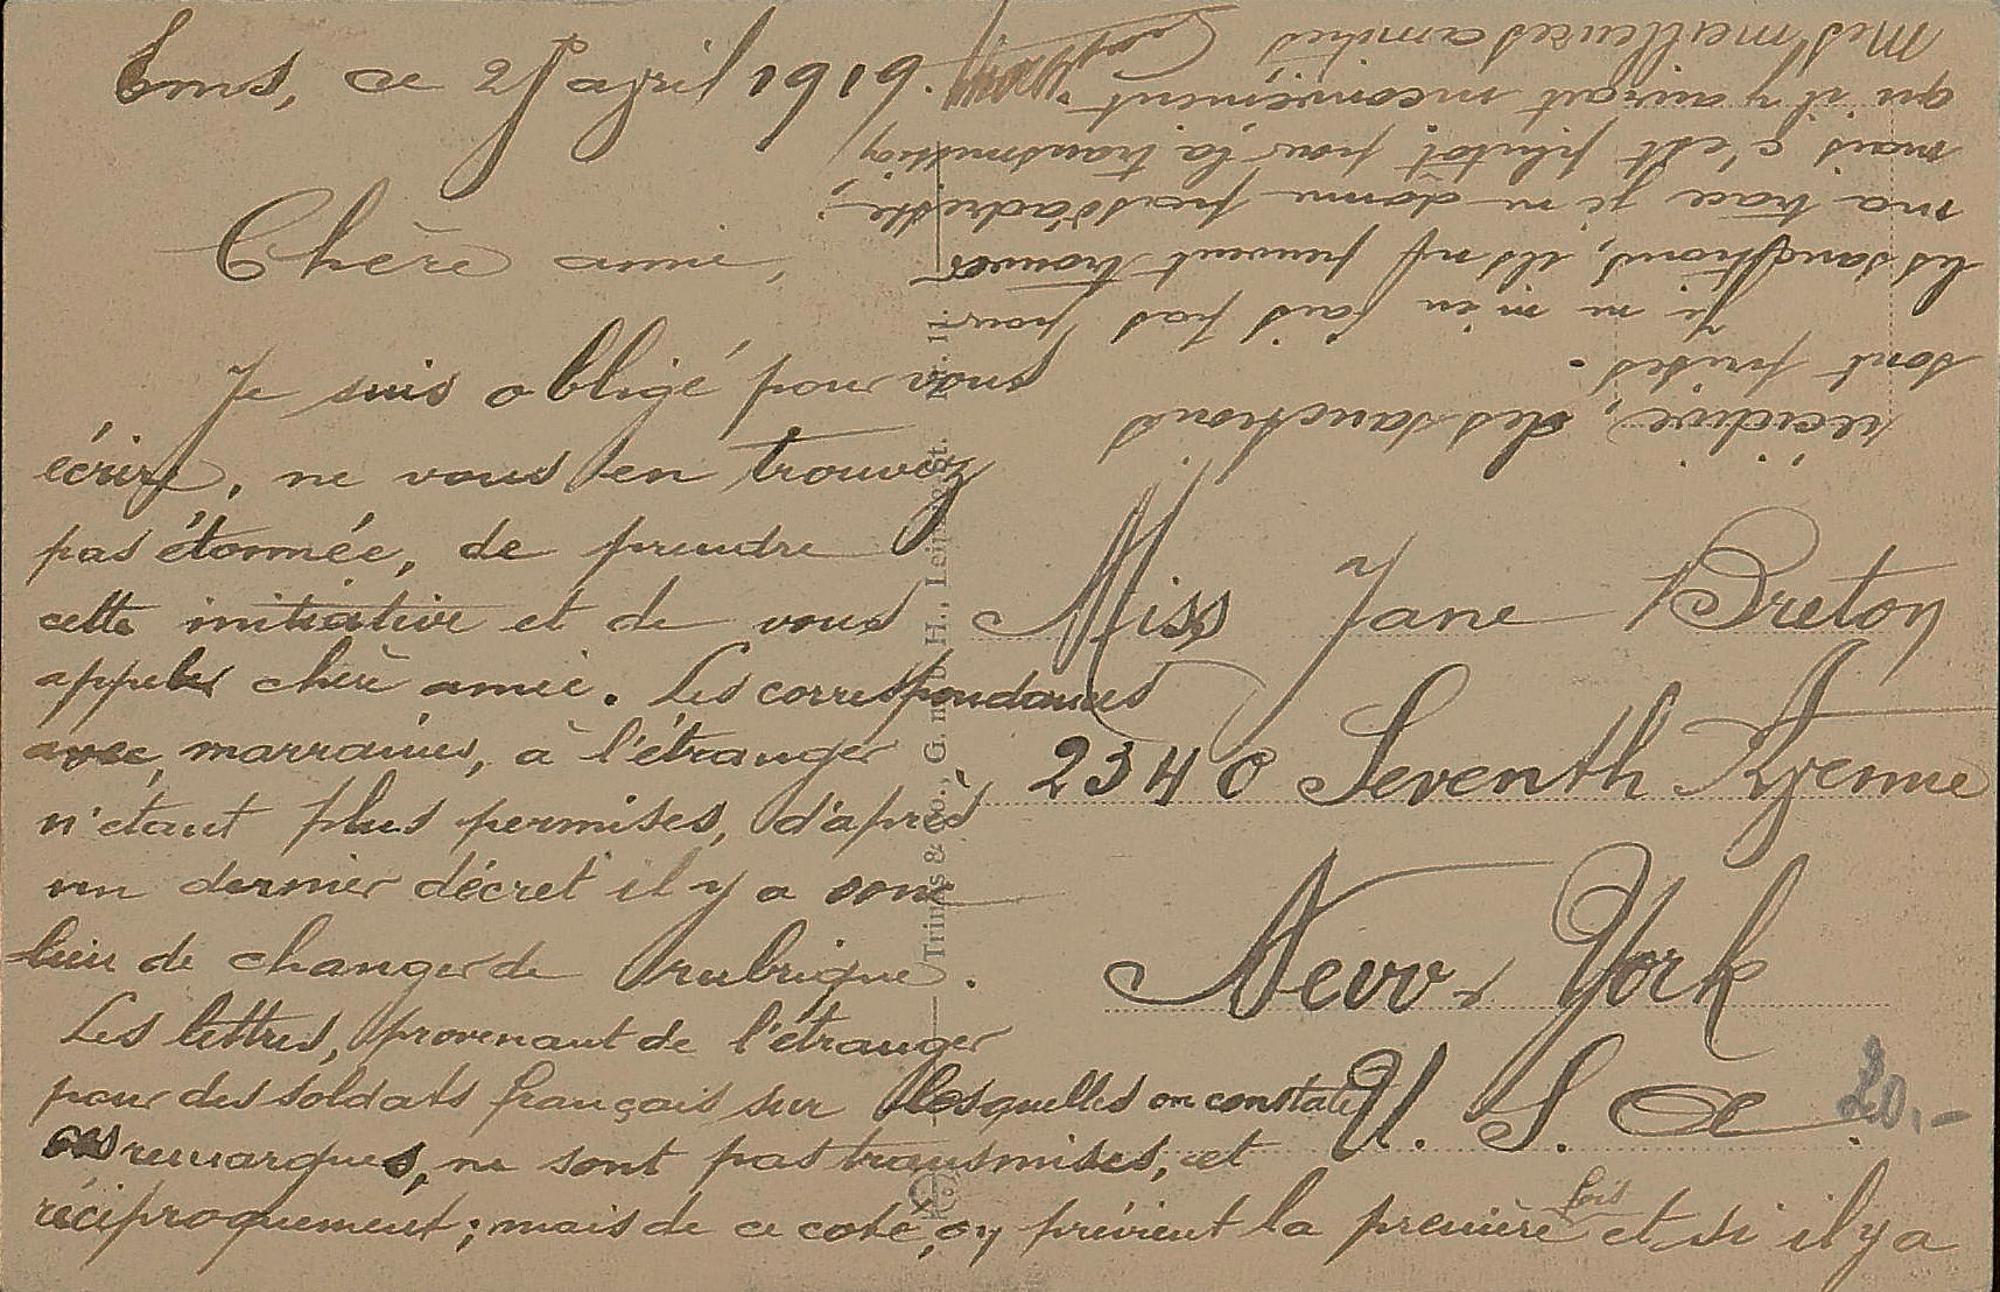 Ems, ce 25 april 1916.
Chère amie,
Je suis obligé pour vous
écrire, ne vous en trouvez
pas étonnée, de prendre
cette initiative et de vous
appeler chère amie. Les correspondances
avec marraines, à l'étranger
n'étant plus permises, d'après
un dernier décret il y a donc
lieu de changer de rubrique.
Les lettres, provenant de l'étranger
pour des soldats français sur lesquelles on constate
ces remarques, ne sont pas transmises, et
réciproquement; mais de ce coté, on prévient la première fois et si il y a
récidive, des sanctions
sont prises.
Je ne m'en fais pas pour
les sanctions, ils ne peuvent trouver
ma trace je ne donne pas d'adresse;
mais c'est plutôt pour la transmission
qu'il y aurait inconvénient.
Mes meilleures amitiés
Miss Jane Breton
2340 Seventh Avenue
New-York
U. S. A.
20.-
Trinks & Co., G. m. b. H., Leipzig